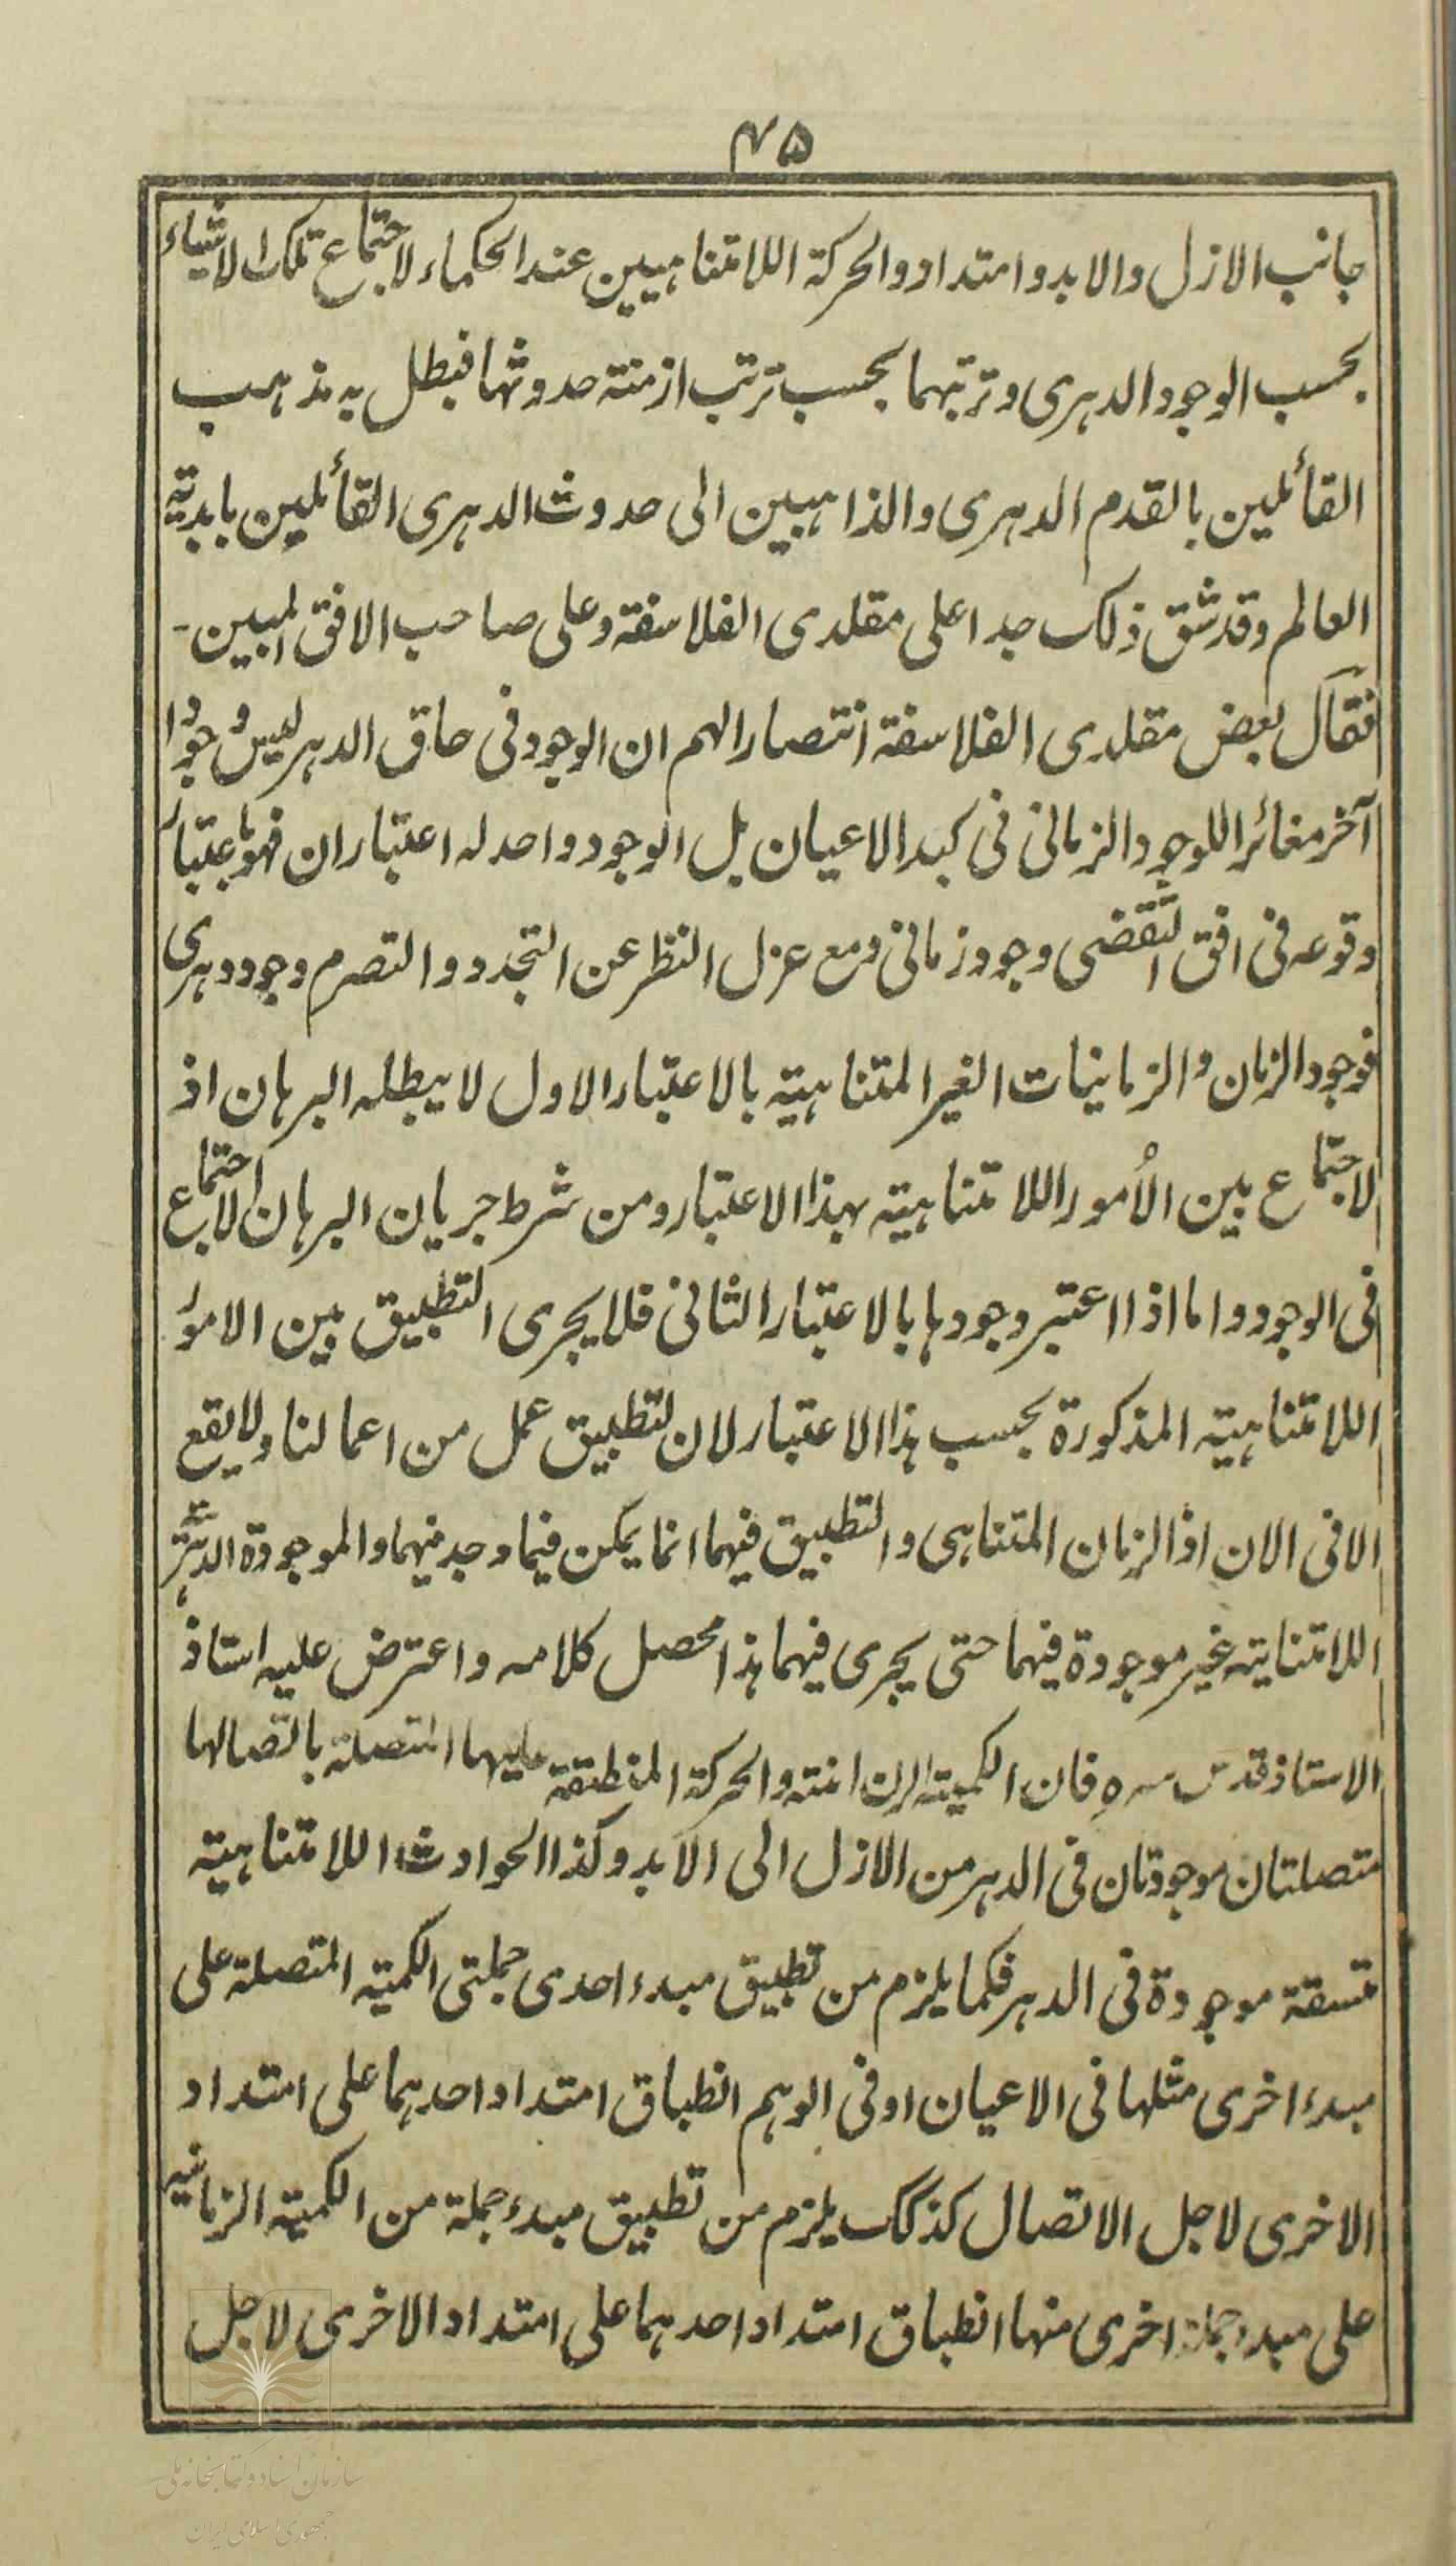 ۴۵
جانب الازل والابد وامتداد والحركة اللامتناهيين عند الحكماء لاجتماع تلك الاشياء
بحسب الوجود الدهرى وترتبهما بحسب ترتب ازمنته حدوثها فبطل به مذهب
القائلين بالقدم الدهرى والذاهبين الى حدوث الدهرى القائلين بابدية
العالم وقد شق ذلك جدا على مقلدى الفلاسفة وعلى صاحب الافق المبين -
فقال بعض مقلدى الفلاسفة انتصارا لهم ان الوجود فى حاق الدهر ليس وجودا
آخر مغائرا للوجود الزمانى فى كبد الاعيان بل الوجود واحد له اعتباران فهو باعتبار
وقوعه فى افق التقضى وجود زمانى ومع عزل النظر عن التجدد والتصرم وجود دهرى
فوجود الزمان والزمانيات الغير المتناهية بالاعتبار الاول لا يبطله البرهان اذ
لا اجتماع بين الأمور اللامتناهية بهذا الاعتبار ومن شرط جريان البرهان الاجتماع
فى الوجود واما اذا اعتبر وجودها بالاعتبار الثانى فلا يجرى التطبيق بين الامور
اللامتناهية المذكورة بحسب هذا الاعتبار لان التطبيق عمل من اعمالنا ولا يقع
الا فى الان او الزمان المتناهى والتطبيق فيهما انما يمكن فيما وجد فيهما والموجودة الدهرية
اللامتناية غير موجودة فيهما حتى يجرى فيهما هذا محصل كلامه واعترض عليه استاذ
الاستاذ قدس سره فان الكمية الزمانية والحركة المنطبقة عليها المتصلة باتصالها
متصلتان موجودتان فى الدهر من الازل الى الابد وكذا الحوادث اللامتناهية
متسقة موجودة فى الدهر فكما يلزم من تطبيق مبدء احدى جملتى الكمية المتصلة على
مبدء اخرى مثلها فى الاعيان او فى الوهم انطباق امتداد احدهما على امتداد
الاخرى لاجل الاتصال كذلك يلزم من تطبيق مبدء جملة من الكمية الزمانية
على مبدء جملة اخرى منها انطباق امتداد احدهما على امتداد الاخرى لاجل
سازمان اسناد و کتابخانه ملی
جمهوری اسلامی ایران